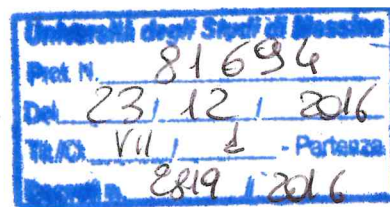 Università degli Studi di Messina
Prot. N. 81694
Del 23 / 12 / 2016
Tit./Cl. VII / 1 - Partenza
Decreti n. 2819 / 2016